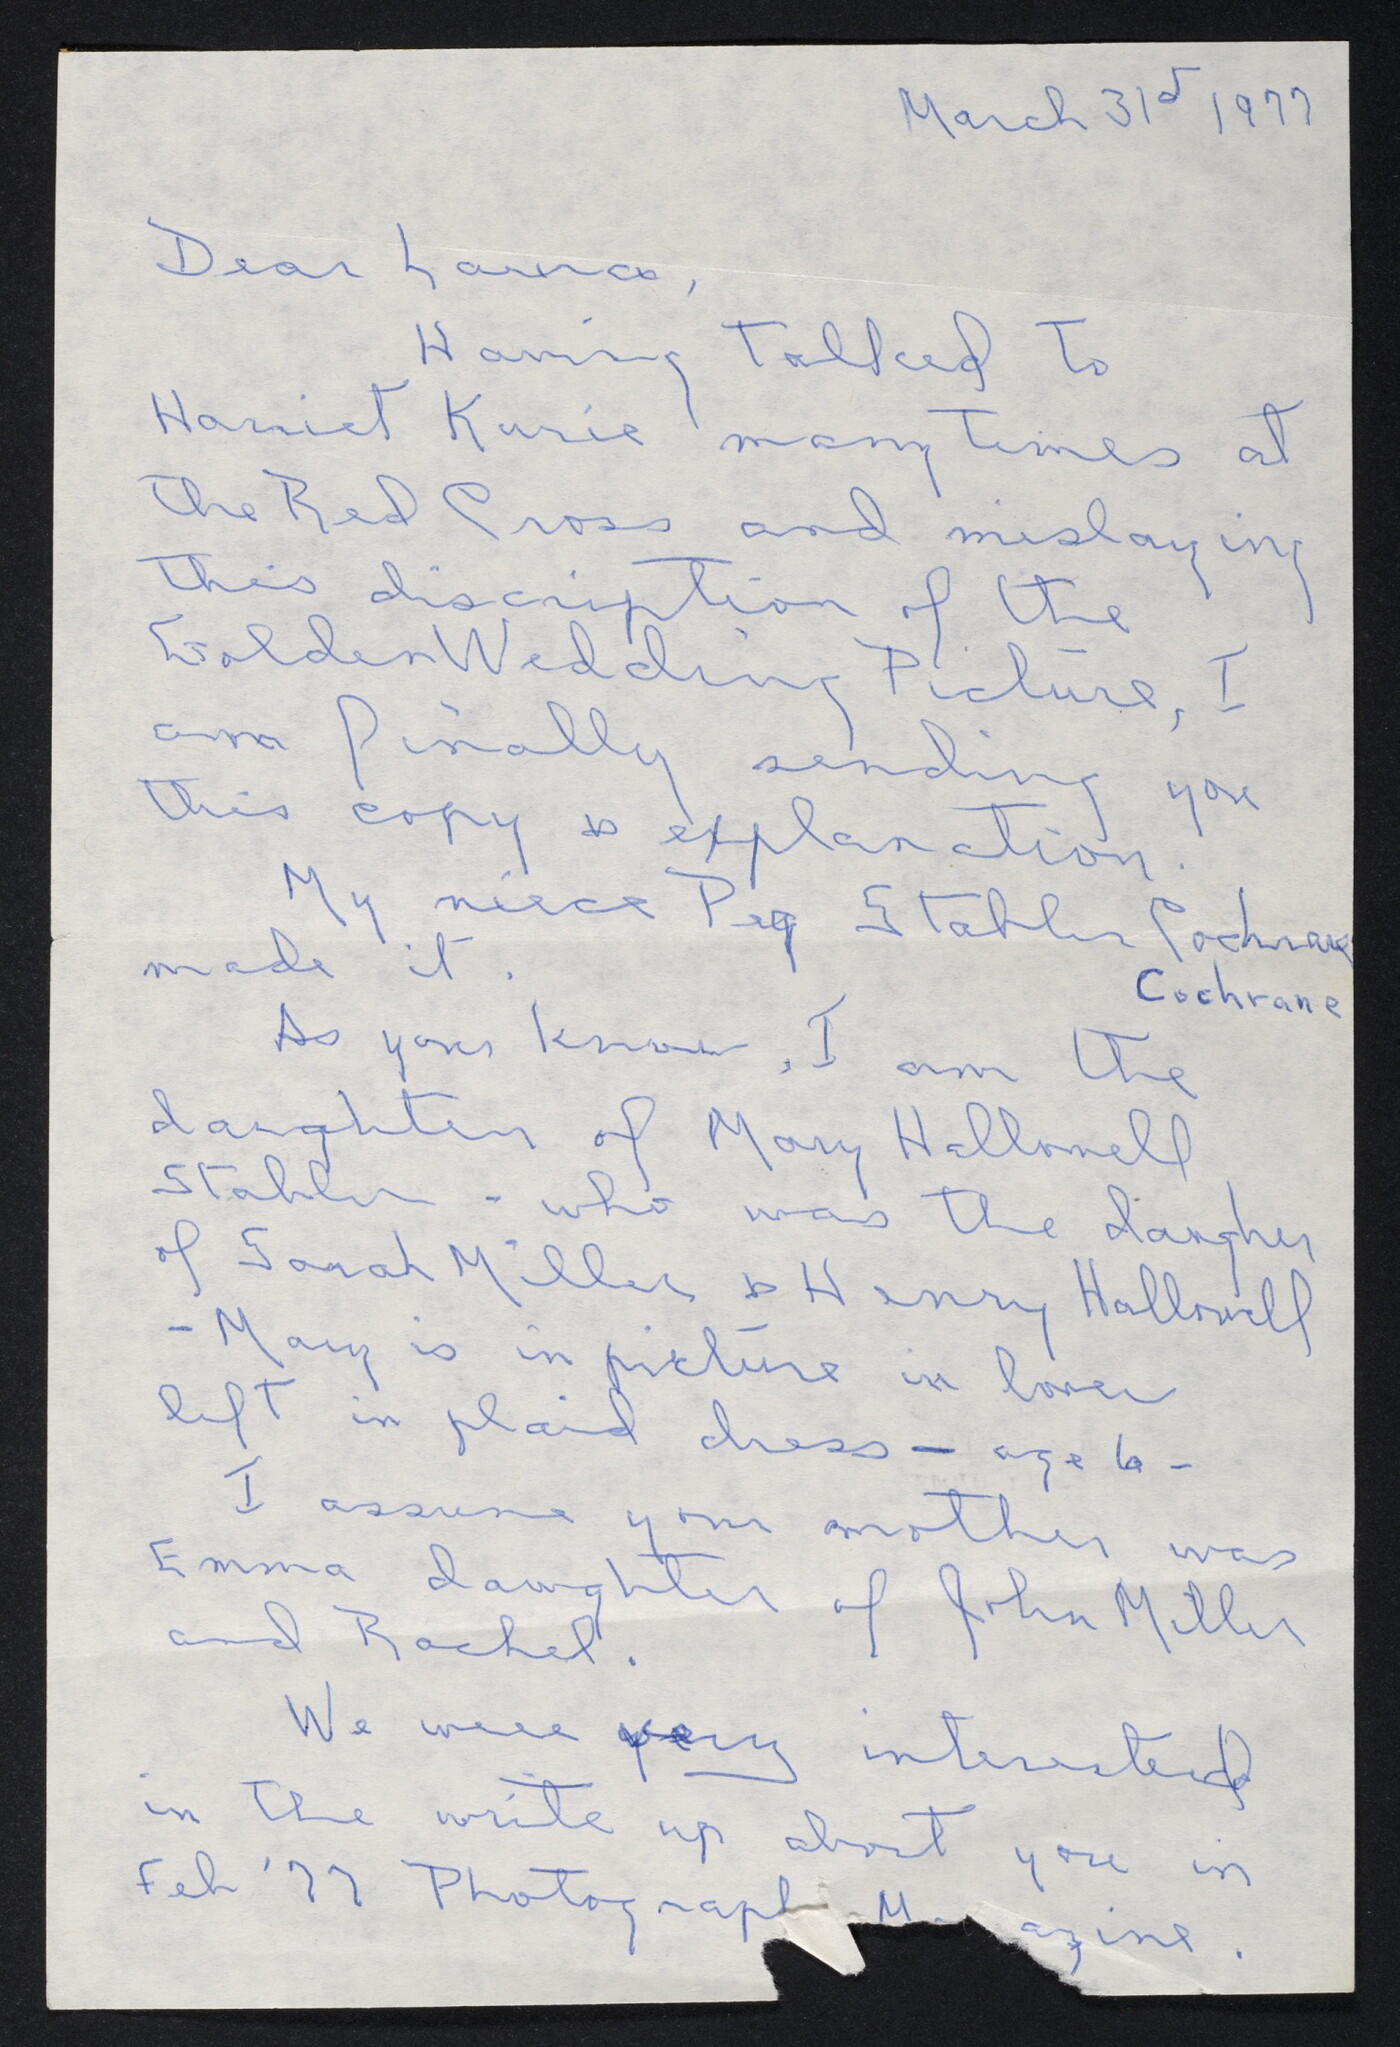 March 31st 1977
Dear Laura,
Having Talked to
Harriet Kurie many times at
the Red Cross and mislaying
this discription of the
Golden Wedding Picture, I
am finally sending you
this copy & explanation.
My niece Peg Stabler Cochrane
Cochrane
made it.
As you know, I am the
daughter of Mary Hallowell
Stabler - who was the daugher
of Sarah Miller & Henry Hallowell
- Mary is in picture in lower
left in plaid dress — age 6 -
I assume your mother was
Emma daughter of John Miller
and Rachel.
We were very interested
in the write up about you in
Feb '77 Photograph Magazine.